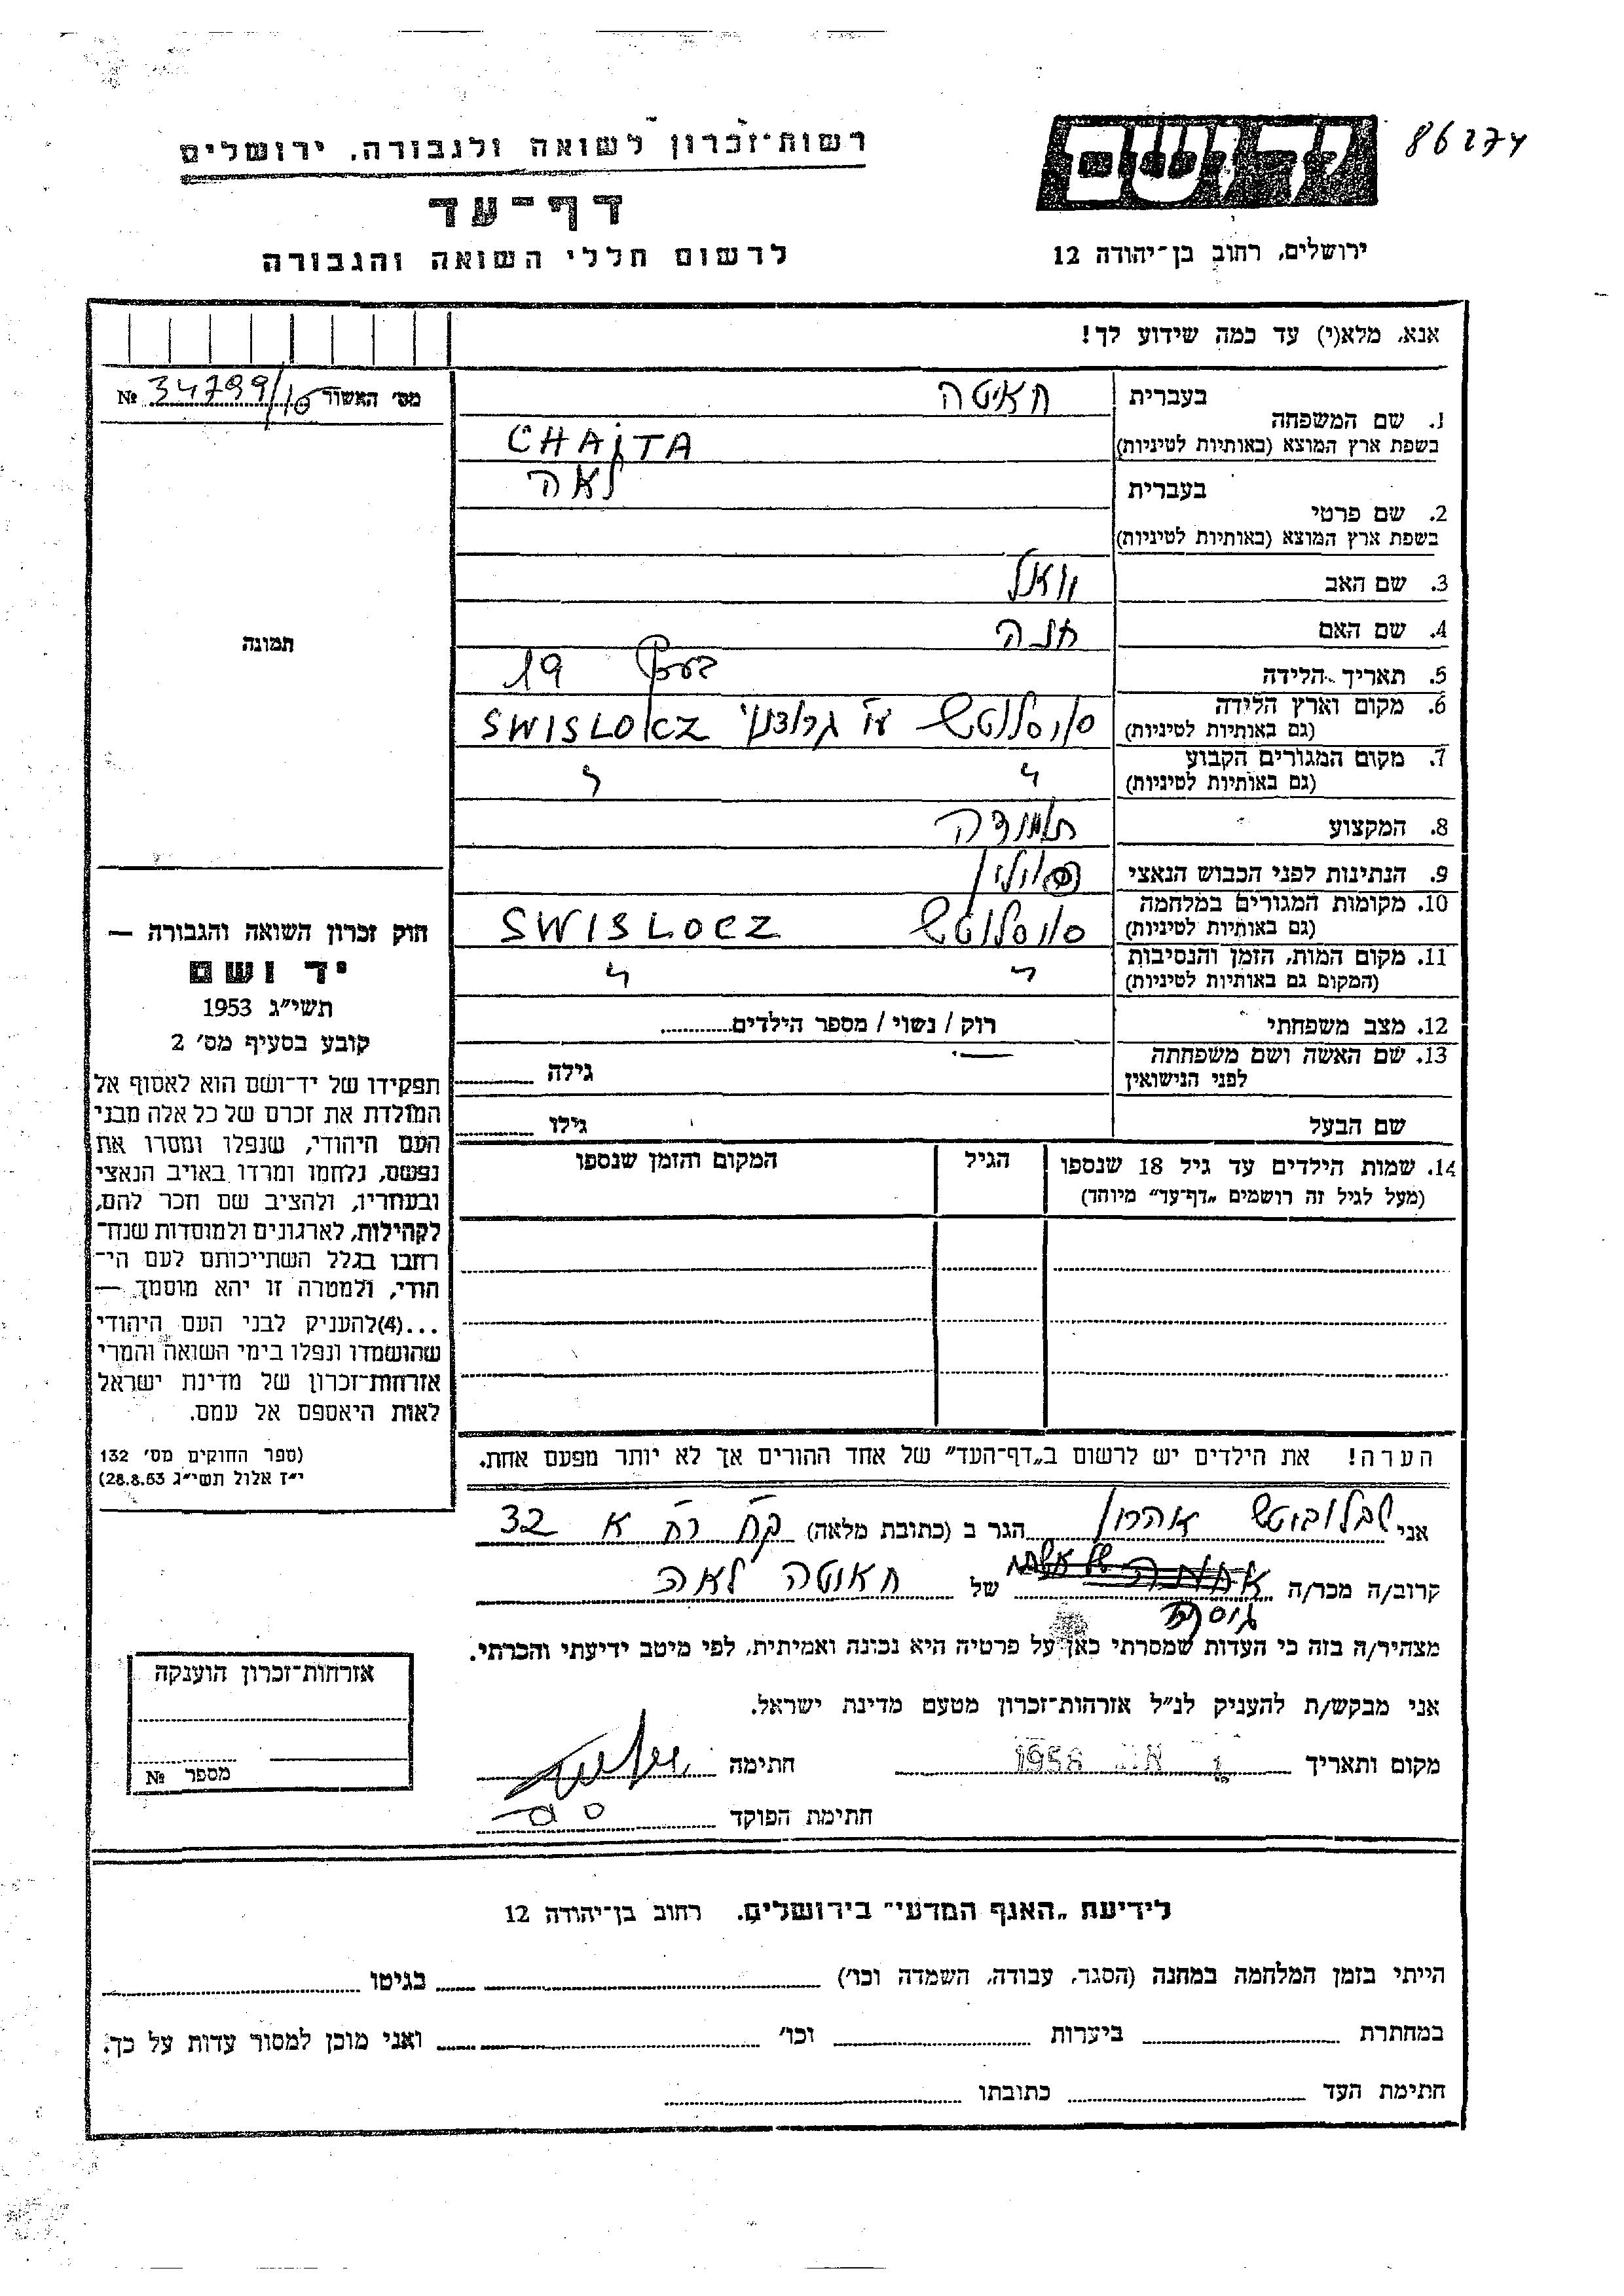 86274
רשות־זכרון לשואה ולגבורה, ירושלים
דף־עד
לרשום חללי השואה והגבורה
יד ושם
ירושלים, רחוב בן־יהודה 12
אנא, מלא(י) עד כמה שידוע לך!
מס' האשור № 34799/16
1. שם המשפחה
בעברית חאיטה
בשפת ארץ המוצא (באותיות לטיניות) CHAITA
2. שם פרטי
בעברית לאה
בשפת ארץ המוצא (באותיות לטיניות)
3. שם האב
4. שם האם חנה
5. תאריך הלידה 19
6. מקום וארץ הלידה
(גם באותיות לטיניות) סויסלוטש SWISLOCZ
7. מקום המגורים הקבוע
(גם באותיות לטיניות) " "
8. המקצוע תלמידה
9. הנתינות לפני הכבוש הנאצי פולין
10. מקומות המגורים במלחמה
(גם באותיות לטיניות) סויסלוטש SWISLOCZ
11. מקום המות, הזמן והנסיבות
(המקום גם באותיות לטיניות) " "
12. מצב משפחתי רוק / נשוי / מספר הילדים
13. שם האשה ושם משפחתה
לפני הנישואין גילה
שם הבעל גילו
14. שמות הילדים עד גיל 18 שנספו הגיל המקום והזמן שנספו
(מעל לגיל זה רושמים „דף־עד" מיוחד)
הערה! את הילדים יש לרשום ב„דף־העד" של אחד ההורים אך לא יותר מפעם אחת.
תמונה
חוק זכרון השואה והגבורה —
יד ושם
תשי"ג 1953
קובע בסעיף מס' 2
תפקידו של יד־ושם הוא לאסוף אל
המולדת את זכרם של כל אלה מבני
העם היהודי, שנפלו ומסרו את
נפשם, נלחמו ומרדו באויב הנאצי
ובעוזריו, ולהציב שם וזכר להם,
לקהילות, לארגונים ולמוסדות שנח־
רבו בגלל השתייכותם לעם הי־
הודי, ולמטרה זו יהא מוסמך —
...(4) להעניק לבני העם היהודי
שהושמדו ונפלו בימי השואה והמרי
אזרחות־זכרון של מדינת ישראל
לאות היאספם אל עמם.
(ספר החוקים מס' 132
י"ז אלול תשי"ג 28.8.53)
אני אהרון הגר ב (כתובת מלאה) 32
קרוב/ה מכר/ה של חאיטה לאה
מצהיר/ה בזה כי העדות שמסרתי כאן על פרטיה היא נכונה ואמיתית, לפי מיטב ידיעתי והכרתי.
אני מבקש/ת להעניק לנ"ל אזרחות־זכרון מטעם מדינת ישראל.
מקום ותאריך 1956 חתימה
חתימת הפוקד
אזרחות־זכרון הוענקה
מספר №
לידיעת „האגף המדעי" בירושלים, רחוב בן־יהודה 12
הייתי בזמן המלחמה במחנה (הסגר, עבודה, השמדה וכו') בגיטו
במחתרת ביערות וכו' ואני מוכן למסור עדות על כך.
חתימת העד כתובתו